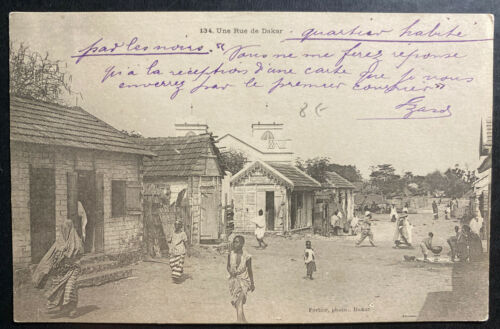 134. Une Rue de Dakar - quartier habité
par les noirs. "Vous ne me ferez réponse
qu'à la réception d'une carte que je vous
enverrez par le premier courrier"
8€
Fortier, photo., Dakar